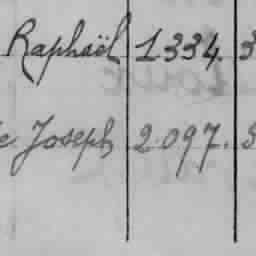 Raphaël 1334. 3
e Joseph 2.097. 3